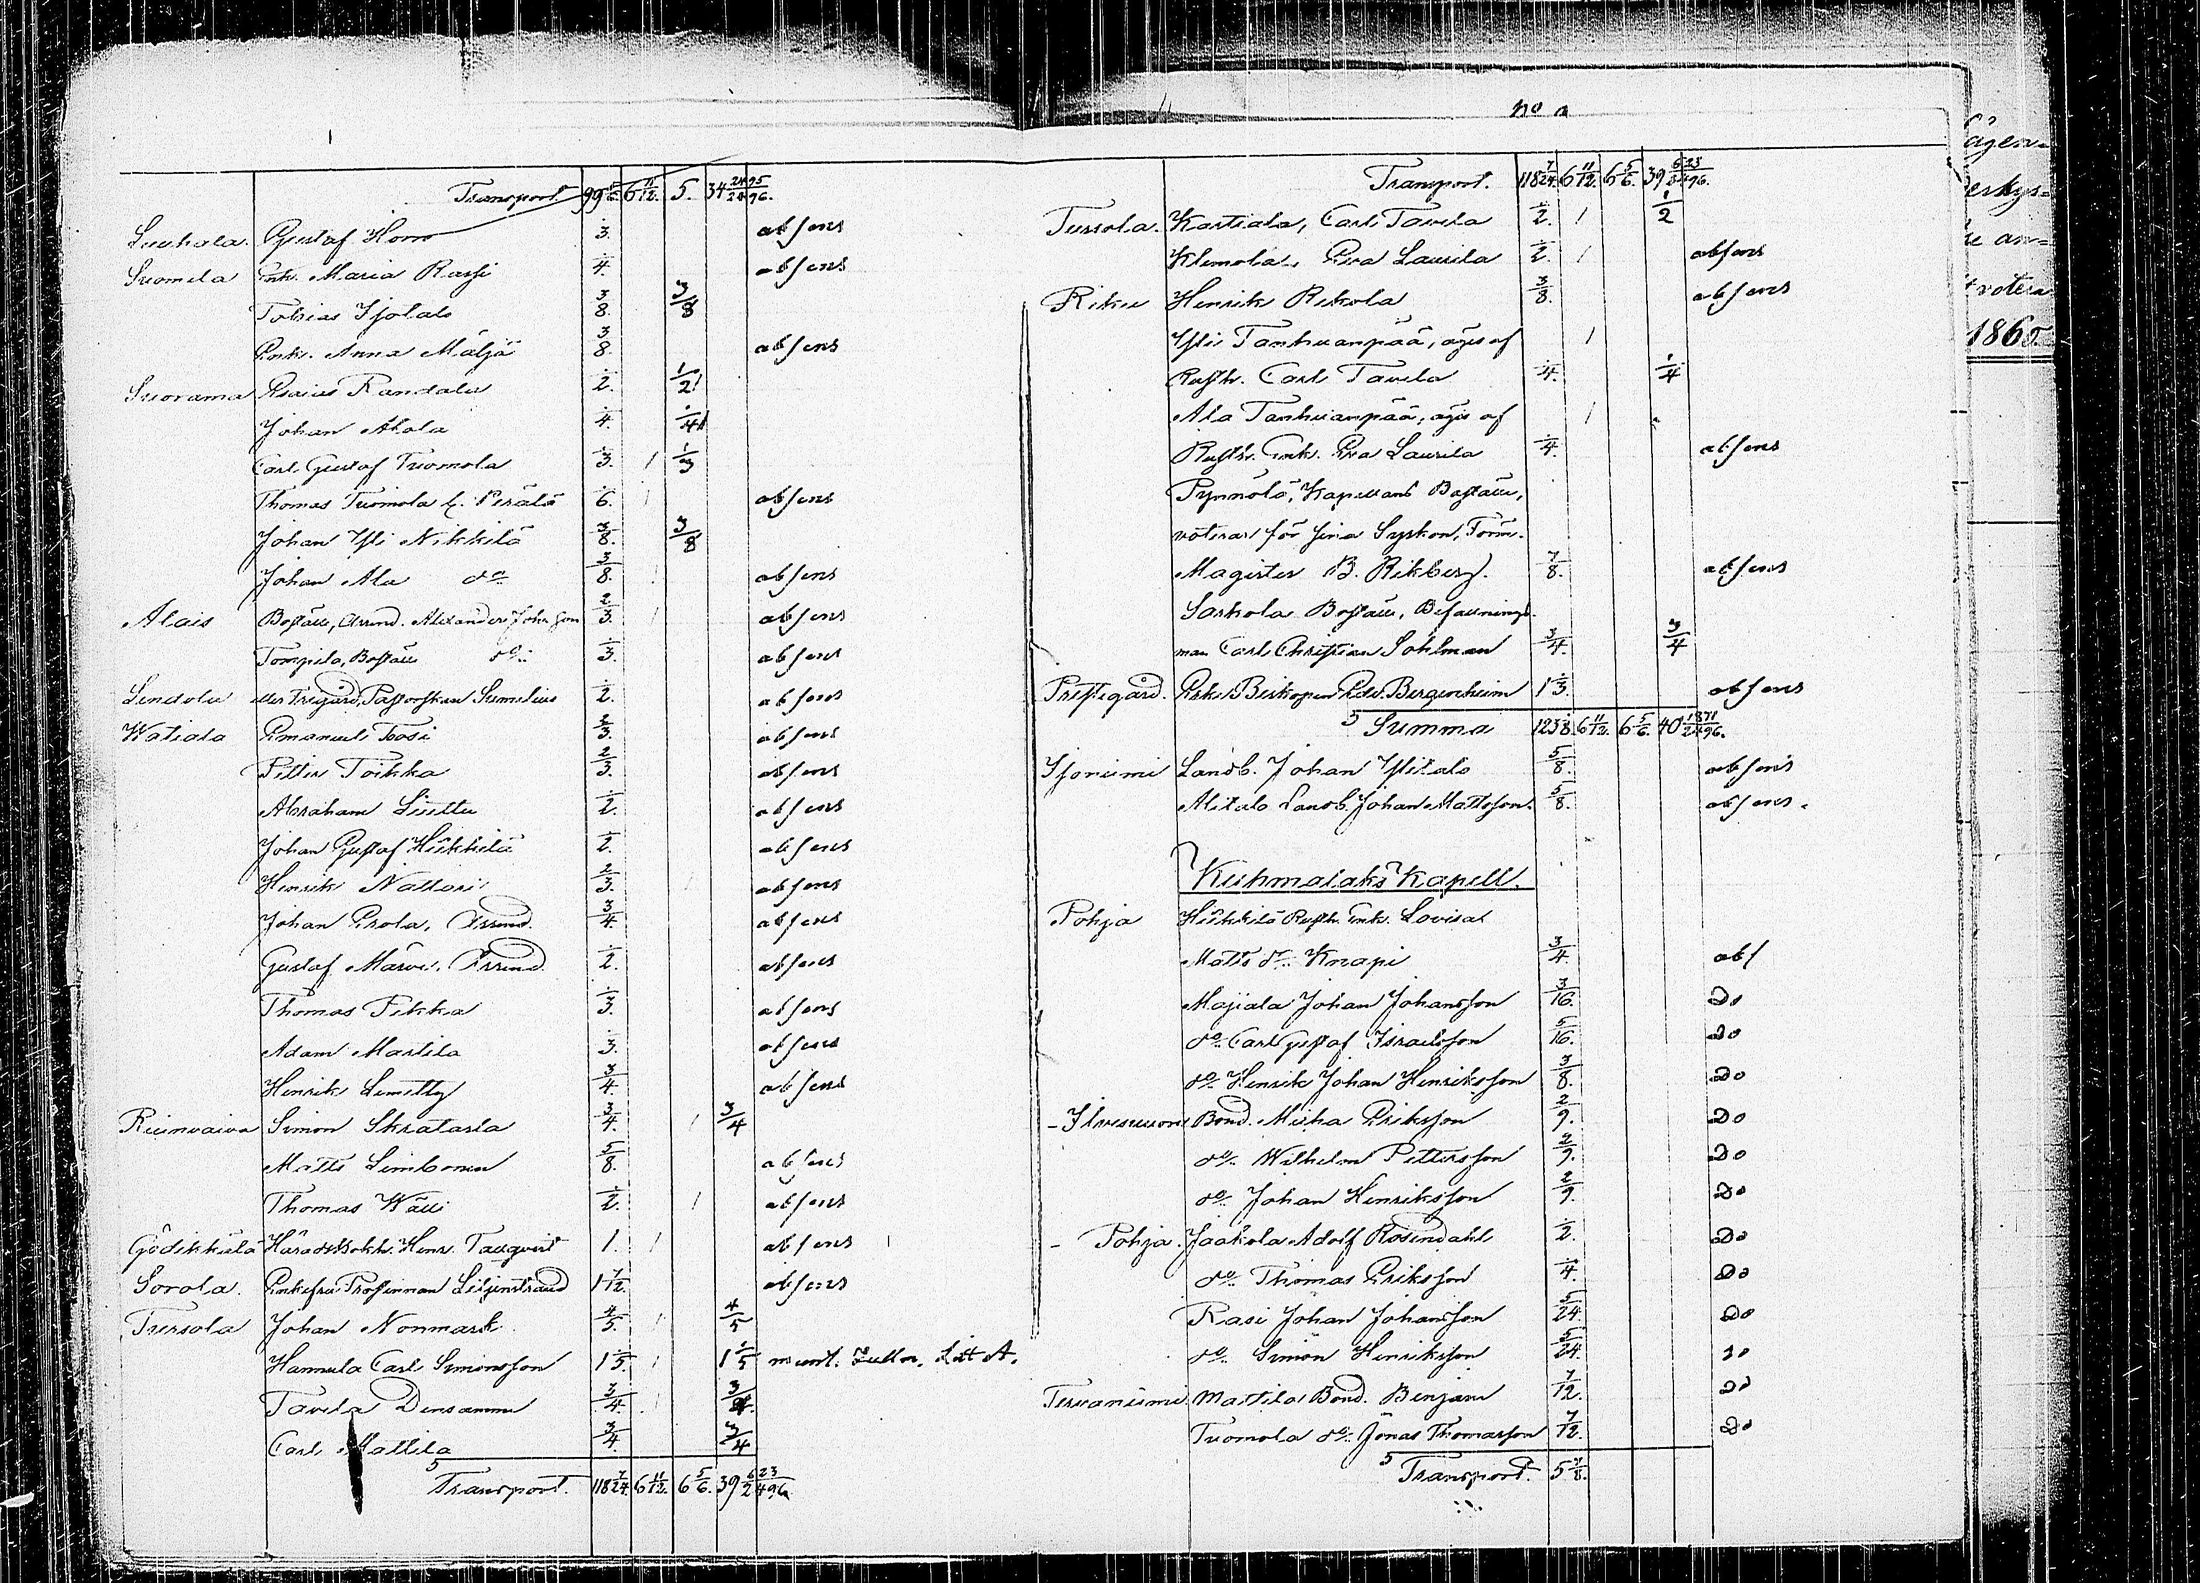 Transport 99 5/6. 6 11/12. 5. 34 95/96.
Gustaf Horn 1/3. absens
Suomela Enk. Maria Rassi 1/4. absens
Tobias Isotalo 3/8. 3/8
Enk. Anna Mäljä 3/8. absens
Suorama Esaias Randala 1/2. 1/2
Johan Alola 1/4. 1/4
Carl Gustaf Tuomola 1/3. 1 1/3
Thomas Tuomola l. Perälä 1/6. 1 absens
Johan Yli Nikkilä 3/8. 3/8
Johan Ala do 3/8. absens
Alais Boställe, Arrend. Alexander Johansson 2/3. 1 absens
Tompila, Boställe do 1/3. absens
absens
Watiala Emanuel Tossi 2/3. absens
Petter Toikka 2/3. absens
Abraham Liuttu 1/2. absens
Johan Gustaf Heikkilä 1/2. absens
Henrik Nattari 2/3. absens
Johan Erola, Arrend. 3/4. absens
Gustaf Arrend. 1/2. absens
Thomas Pikka 1/3. absens
Adam Mattila 1/3. absens
Henrik Limetty 3/4. absens
Simon Skratarla 3/4. 1 3/4
Matts Limbonen 5/8. absens
Thomas Wälli 1/2. 1 absens
Häradsskr. Henr. Tallqvist 1. 1 absens
Sorola. Liljenstrand 1 7/12. absens
Tursola Johan Nonmark 4/5. 1 4/5
Hannula Carl Simonsson 1 1/5. 1 1 1/5 Litt A.
Tavela Densamme 3/4. 1 3/4.
Carl Mattila 3/4. 3/4
Transport. 118 7/24. 6 11/12. 6 5/6. 39 23/96.
No
Transport. 118 7/24. 6 11/12. 6 5/6. 39 23/96.
Tursola. Kartiala, Carl Tavela 1/2. 1 1/2
Klemola, Eva Laurila 1/2. 1 absens
Riku Henrik Rekola 3/8. absens
Yli Tanhuanpää, äges af 1
Rusth. Carl Tavela 1/4. 1/4
Ala Tanhuanpää, äges af 1
Rusth. Enk. Eva Laurila 1/4. absens
Pynnölä, Kapellans Boställe,
voterar för sina Syskon,
Magister B. Rikberg. 7/8. absens
Sarkola Boställe, Befallnings-
man Carl Christian Sohlman 3/4. 3/4
Prestegård. Erke Biskopen Edv. Bergenheim 1 1/3. absens
Summa 123 6 11/12. 6 5/6. 40 71/96.
Isoniemi Landb. Johan Ylitalo 5/8. absens
Alitalo Landb. Johan Mattsson. 5/8. absens.
Kuhmalaks Kapell.
Pohja Heikkilä Rusth. Enk. Lovisa
Matts do. Knapi 3/4. abs
Majiala Johan Johansson 3/16. Do
do. Carl Gustaf Israelsson 5/16. Do
do. Henrik Johan Henriksson 3/8. Do
Bond. Micha Eriksson 2/9. Do
do. Wilhelm Pettersson 2/9. Do
do. Johan Henriksson 2/9. Do
- Pohja. Jaakola Adolf Rosendahl 1/2. Do
do. Thomas Eriksson 1/4. Do
Rasi Johan Johansson 5/24. Do
do. Simon Henriksson 5/24. Do
Mattila Bond. Benjam 7/12. Do
Tuomola do. Jonas Thomasson 7/12. Do
Transport. 5 7/8.
1865.